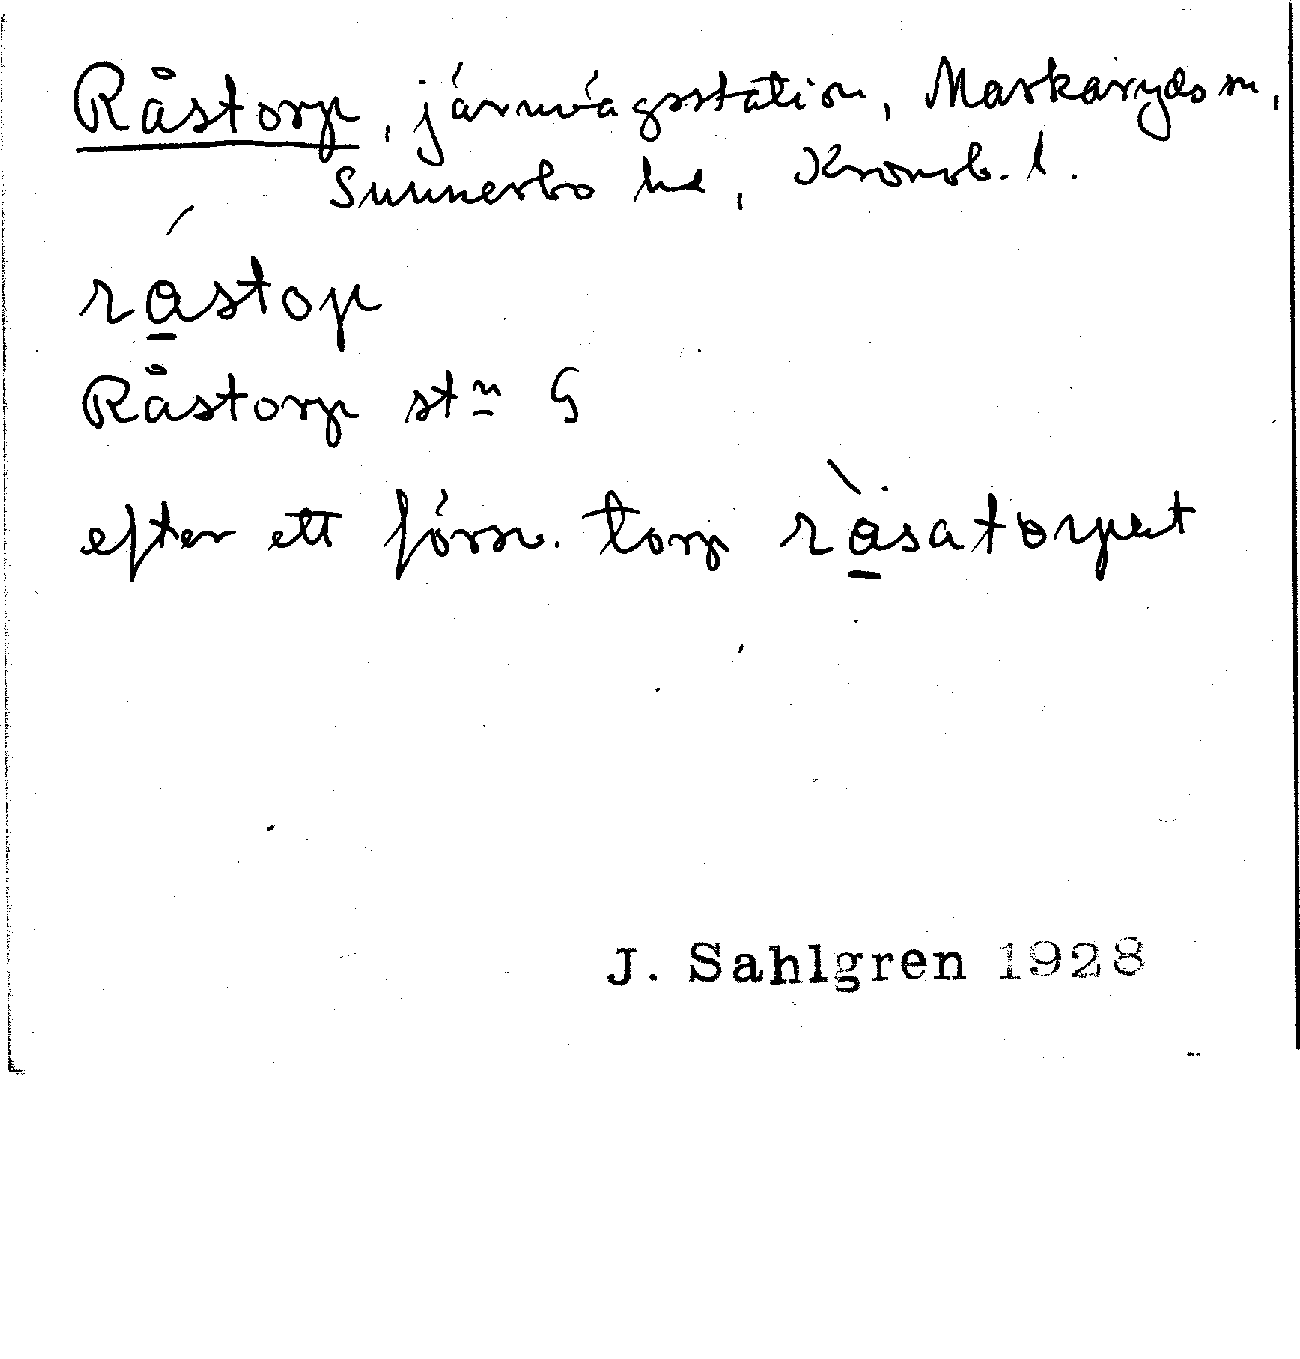 Råstorp, järnvägsstation, Markaryds sn,
Sunnerbo hd, Kronob. l.
rástop
Råstorp stn G
efter ett försv. torp ràsatorpet
J. Sahlgren 1928